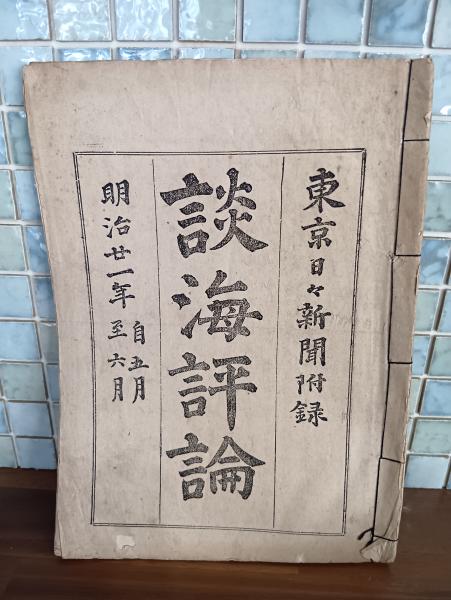 東京日々新聞附録
談海評論
明治廿一年
自五月
至六月